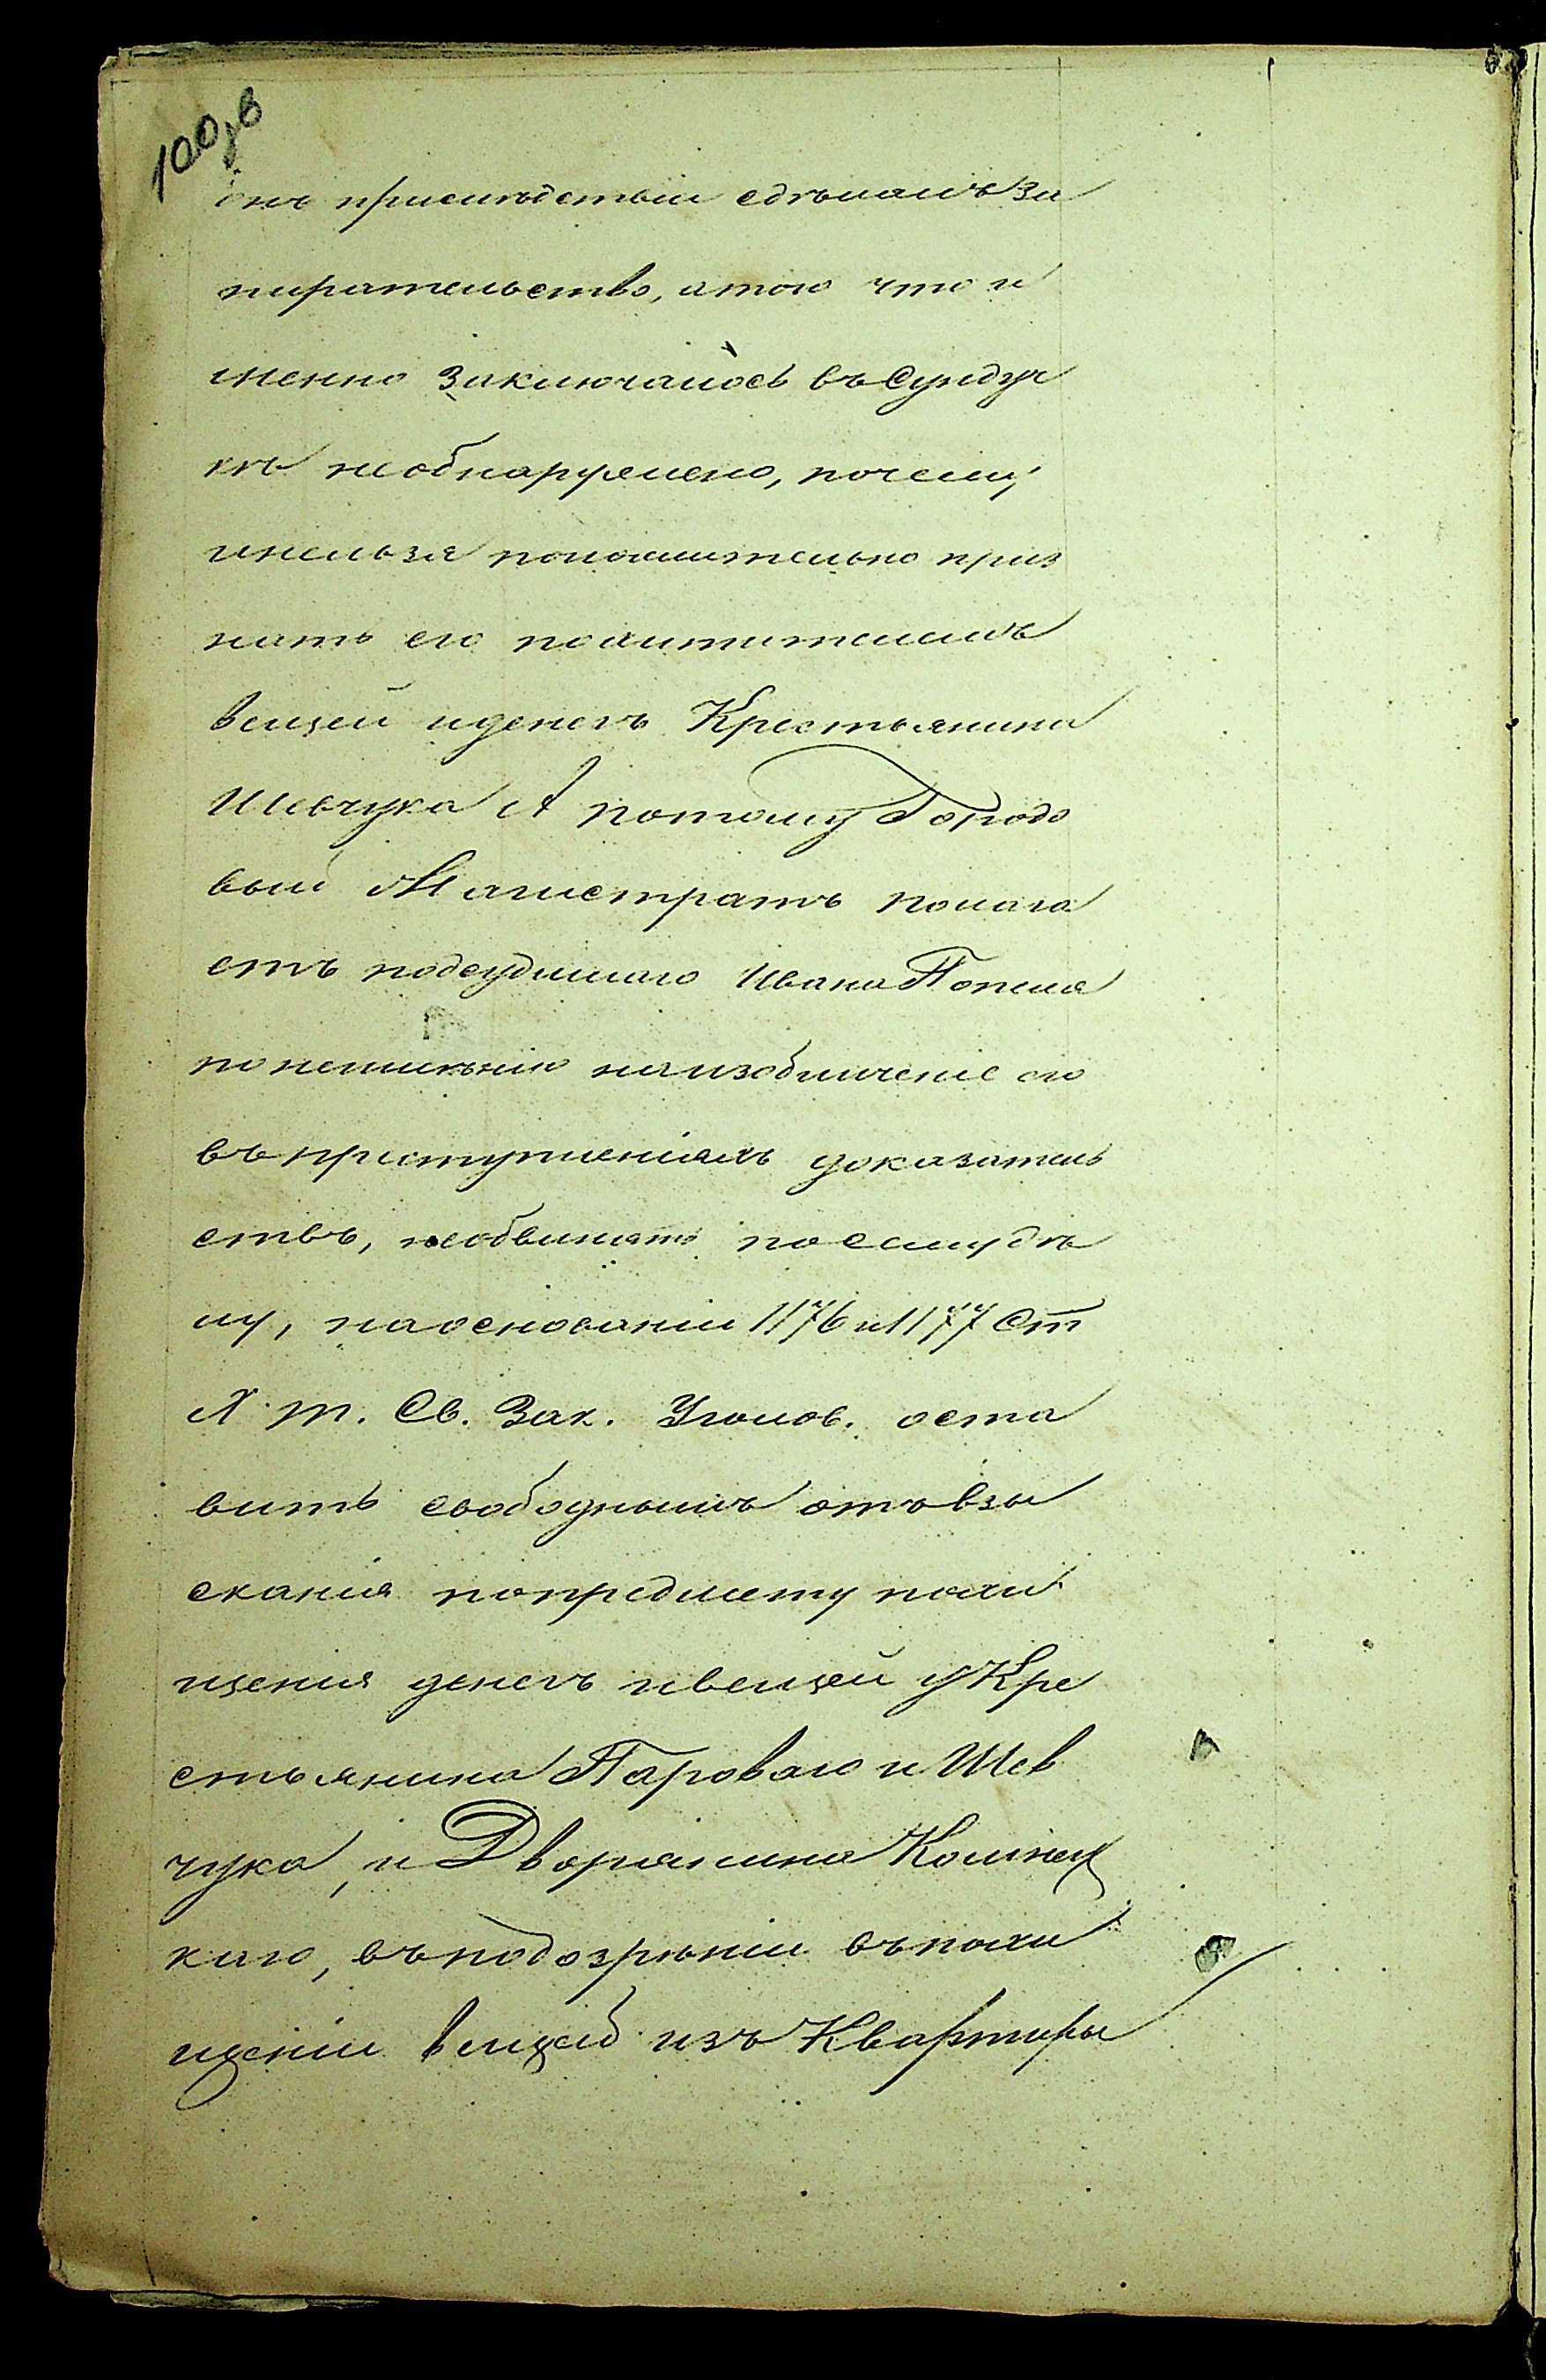 100зв
онъ прислѣдствіи сдѣлалъ за
пирательство, а того что и
менно заключалось въ сунду
кѣ необнаружено, почему
инельзя положительно приз
нать его похитителемъ
вещей иденегъ Крестьянина
Шевчука А потому Городо
вый Магистратъ полага
етъ подсудимаго Ивана Попеля
понеимѣнію наизобличеніе его
въ преступленіяхъ доказатель
ствъ, необвинять посему дѣ
лу, наоснованіи 1176 и 1177 ст
X. т. Св. Зак. Уголов. оста
вить свободнымъ отъ взы
сканія попредмету похи
щенія денегъ ивещей у Кре
стьянина Пароваго и Шев
чука, и Дворянина Колинец
каго, въ подозрѣніи въ похи
щеніи вещей изъ Квартиры